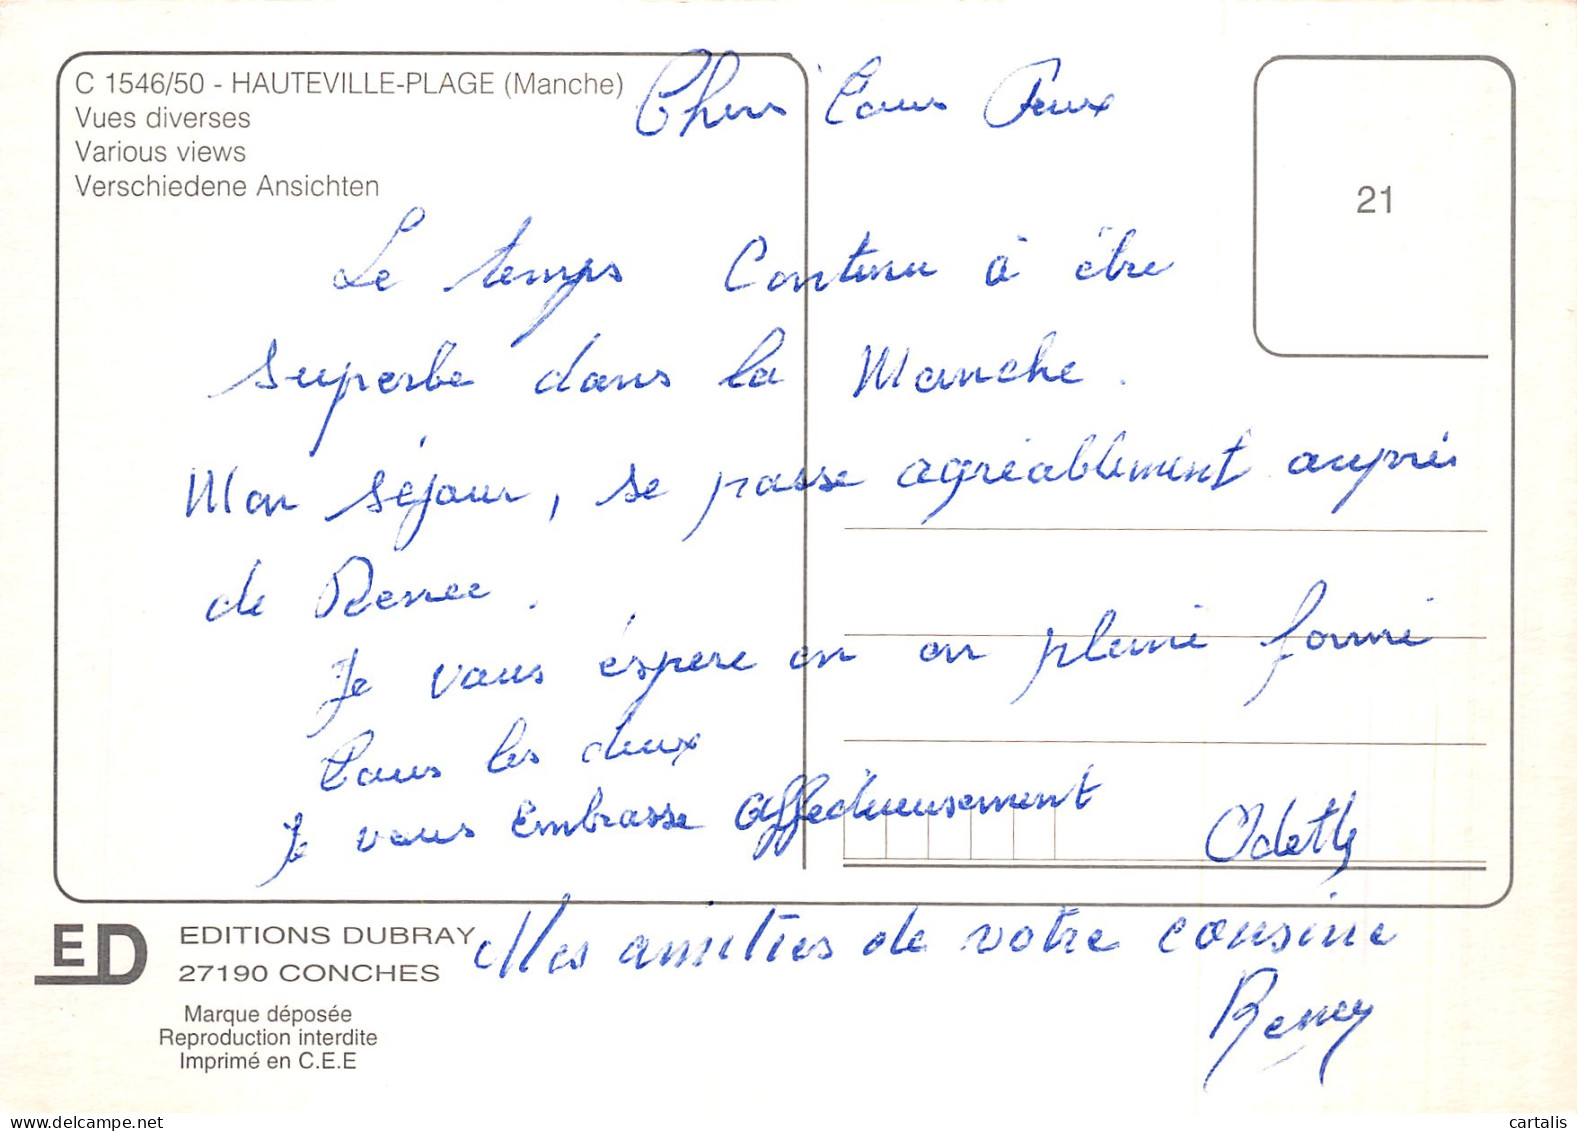 C 1546/50 - HAUTEVILLE-PLAGE (Manche)
Vues diverses
Various views
Verschiedene Ansichten
21
Chers tous Deux
Le temps Continu à être
superbe dans la Manche.
Mon séjour, se passe agréablement auprès
de Renee.
Je vous éspere en en pleine forme
Tous les deux
Je vous Embrasse affectueusement
Odette
Mes amitiés de votre cousine
Reney
ED
EDITIONS DUBRAY
27190 CONCHES
Marque déposée
Reproduction interdite
Imprimé en C.E.E
delcampe.net
cartalis